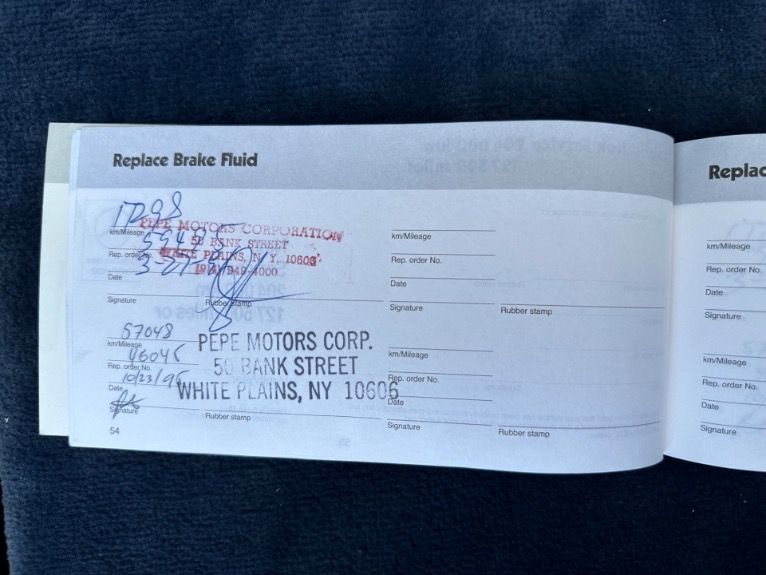 Replace Brake Fluid
Replac
PEPE MOTORS CORPORATION
50 BANK STREET
WHITE PLAINS, N.Y. 10606
(914) 949-4000
km/Mileage
Rep. order No.
Date
Signature
Rubber stamp
57048
km/Mileage
Rep. order No.
10/23/96
Date
Signature
PEPE MOTORS CORP.
50 BANK STREET
WHITE PLAINS, NY 10606
Rubber stamp
km/Mileage
Rep. order No.
Date
Signature
Rubber stamp
km/Mileage
Rep. order No.
Date
Signature
Rubber stamp
54
km/Mileage
Rep. order No.
Date
Signature
km/Mileage
Rep. order No.
Date
Signature